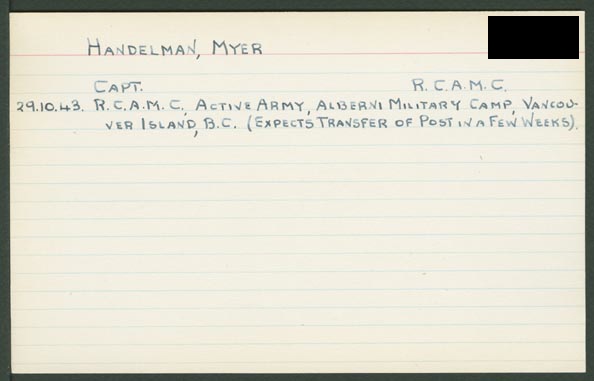 HANDELMAN, MYER
CAPT. R.C.A.M.C.
29.10.43. R.C.A.M.C., ACTIVE ARMY, ALBERNI MILITARY CAMP, VANCOU-
VER ISLAND, B.C. (EXPECTS TRANSFER OF POST IN A FEW WEEKS).